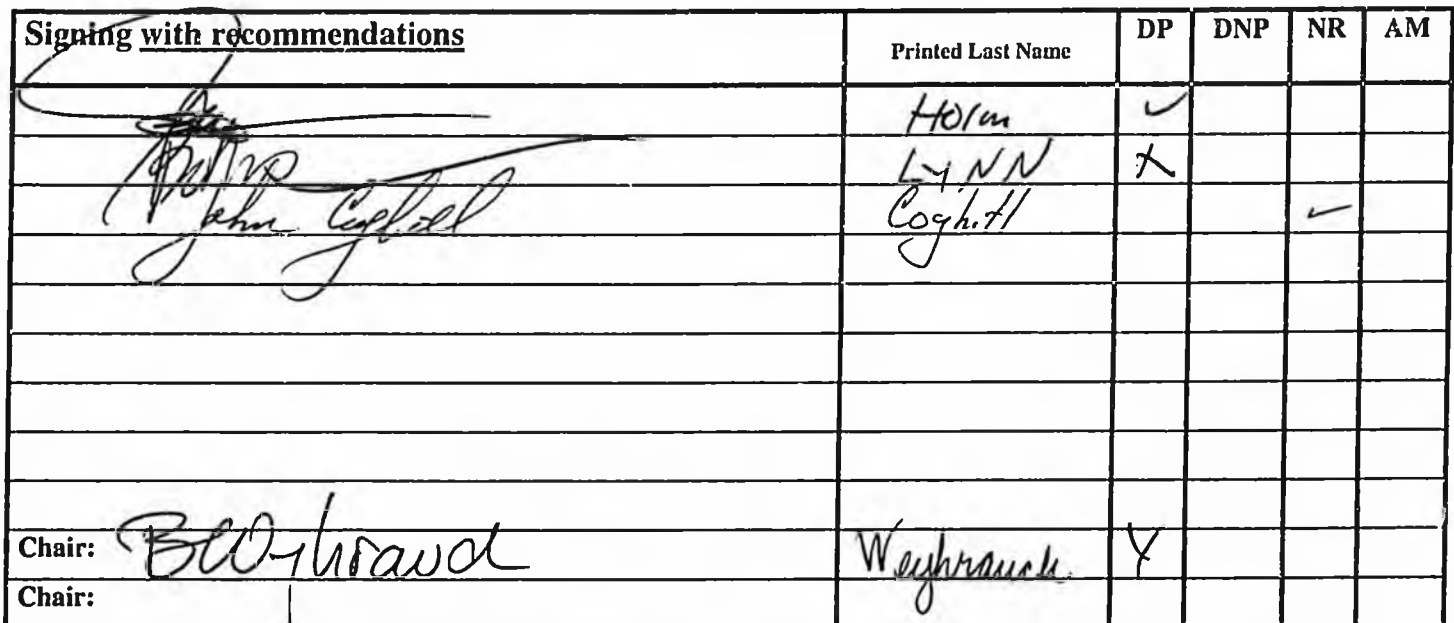 Signing with recommendations Printed Last Name DP DNP NR AM
Holm ✓
LyNN X
John Coghill Coghill ✓
Chair: BWeyhrauch Weyhrauch X
Chair: